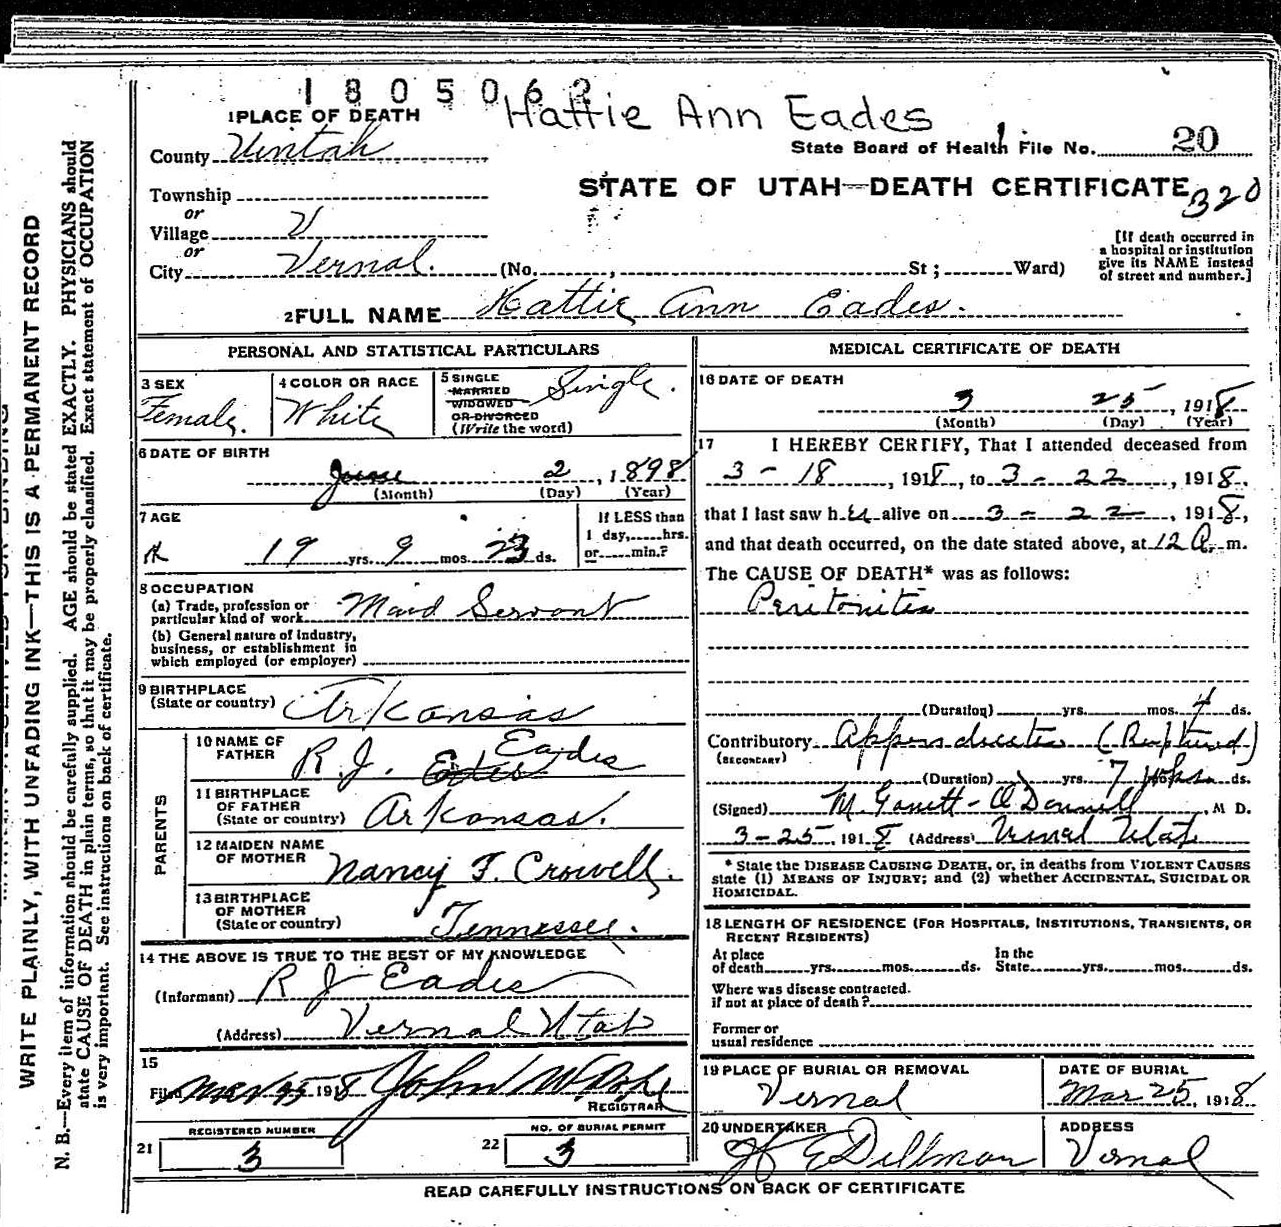 1805062
Hattie Ann Eades
1 PLACE OF DEATH
County Uintah
State Board of Health File No. 20
Township
STATE OF UTAH—DEATH CERTIFICATE
320
or
Village V
or
City Vernal. (No. , St ; Ward)
[If death occurred in
a hospital or institution
give its NAME instead
of street and number.]
2 FULL NAME Hattie Ann Eades.
PERSONAL AND STATISTICAL PARTICULARS
3 SEX
Female.
4 COLOR OR RACE
White
5 SINGLE
MARRIED
WIDOWED
OR DIVORCED
(Write the word)
Single.
6 DATE OF BIRTH
June 2, 1898
(Month) (Day) (Year)
7 AGE
19 yrs. 9 mos. 23 ds.
If LESS than
1 day,.....hrs.
or.....min.?
8 OCCUPATION
(a) Trade, profession or
particular kind of work Maid Servant
(b) General nature of Industry,
business, or establishment in
which employed (or employer)
9 BIRTHPLACE
(State or country) Arkansas
PARENTS
10 NAME OF
FATHER R. J. Eades
11 BIRTHPLACE
OF FATHER
(State or country) Arkansas.
12 MAIDEN NAME
OF MOTHER Nancy F. Crowell.
13 BIRTHPLACE
OF MOTHER
(State or country) Tennessee.
14 THE ABOVE IS TRUE TO THE BEST OF MY KNOWLEDGE
(Informant) R J Eades
(Address) Vernal Utah
15
Filed Mar 25 1918 John W.
REGISTRAR
REGISTERED NUMBER
21 3
NO. OF BURIAL PERMIT
22 3
MEDICAL CERTIFICATE OF DEATH
16 DATE OF DEATH
3 25, 1918
(Month) (Day) (Year)
17 I HEREBY CERTIFY, That I attended deceased from
3-18, 1918, to 3-22, 1918,
that I last saw her alive on 3-22, 1918,
and that death occurred, on the date stated above, at 12 A. m.
The CAUSE OF DEATH* was as follows:
Peritonitis
(Duration) yrs. mos. 4 ds.
Contributory Appendicitis (Ruptured)
(SECONDARY)
(Duration) yrs. 7 mos. ds.
(Signed) M. M. D.
3-25, 1918 (Address) Vernal Utah
* State the DISEASE CAUSING DEATH, or, in deaths from VIOLENT CAUSES
state (1) MEANS OF INJURY; and (2) whether ACCIDENTAL, SUICIDAL OR
HOMICIDAL.
18 LENGTH OF RESIDENCE (FOR HOSPITALS, INSTITUTIONS, TRANSIENTS, OR
RECENT RESIDENTS)
At place
of death yrs. mos. ds.
In the
State yrs. mos. ds.
Where was disease contracted.
if not at place of death?
Former or
usual residence
19 PLACE OF BURIAL OR REMOVAL
Vernal
DATE OF BURIAL
Mar 25, 1918
20 UNDERTAKER
Dillman
ADDRESS
Vernal
READ CAREFULLY INSTRUCTIONS ON BACK OF CERTIFICATE
WRITE PLAINLY, WITH UNFADING INK—THIS IS A PERMANENT RECORD
N. B.—Every item of information should be carefully supplied. AGE should be stated EXACTLY. PHYSICIANS should
state CAUSE OF DEATH in plain terms, so that it may be properly classified. Exact statement of OCCUPATION
is very important. See instructions on back of certificate.